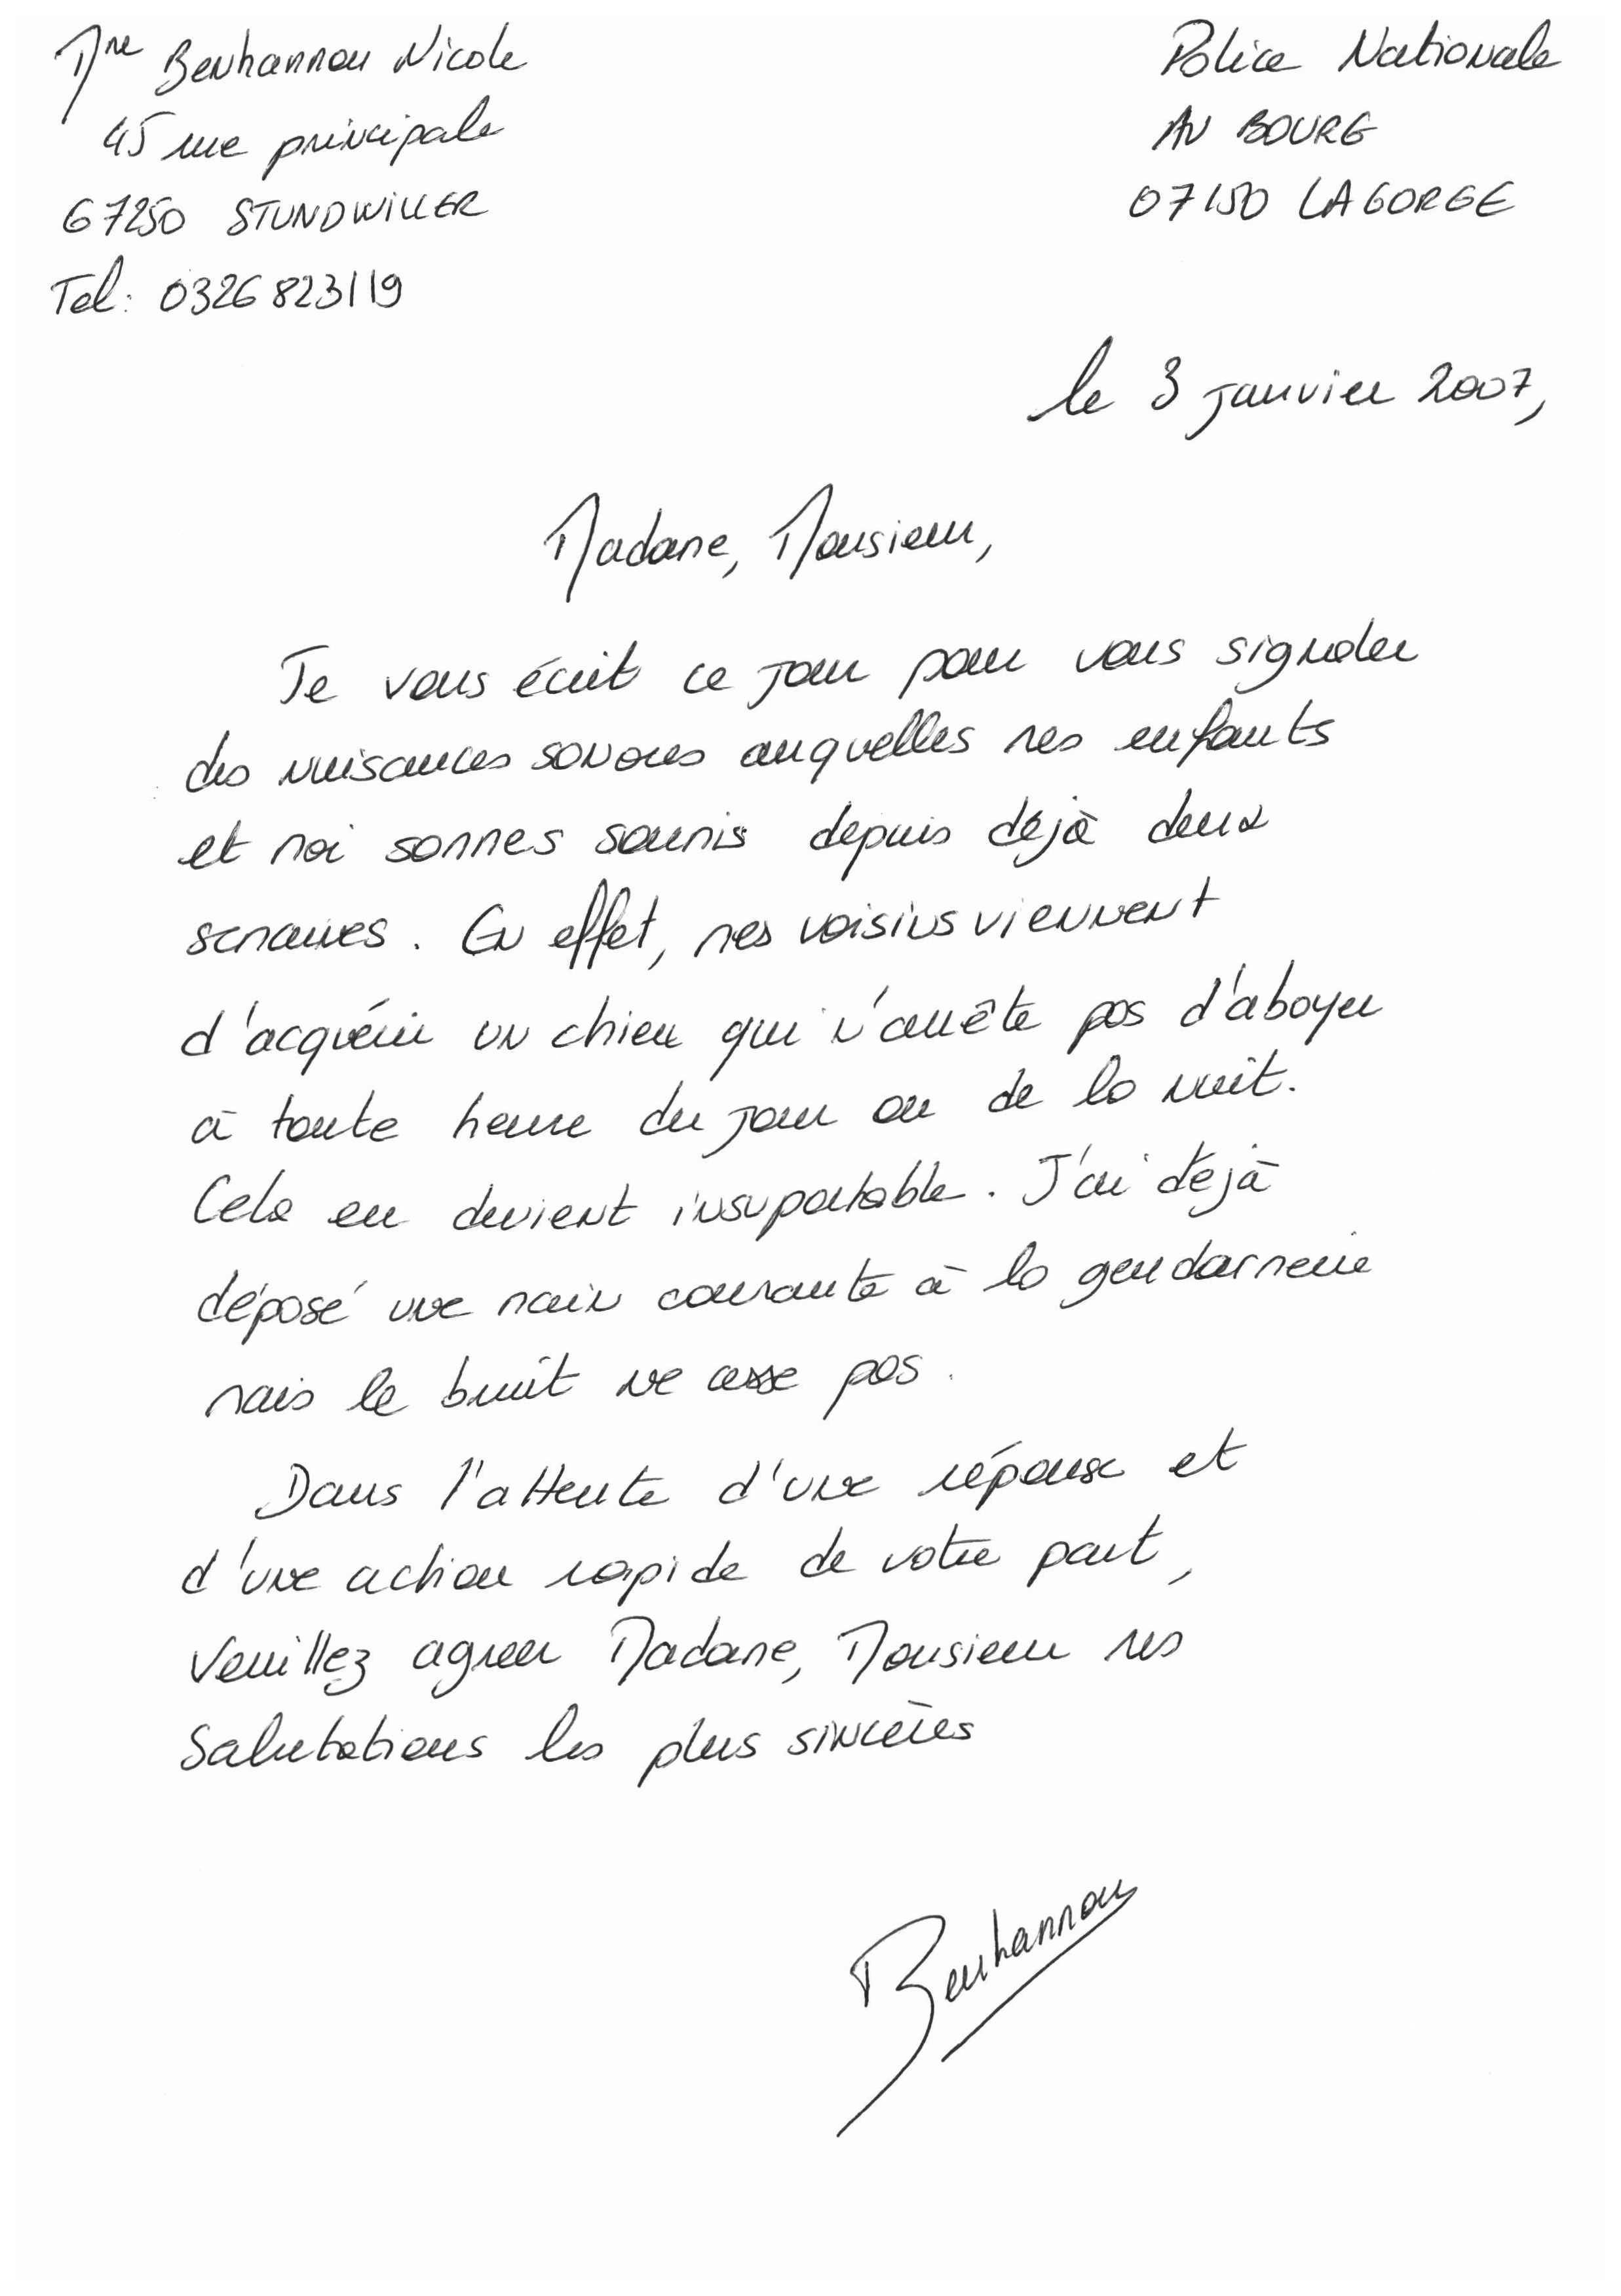 Mme Benhammou Nicole
45 rue principale
67250 STUNDWILLER
Tel: 0326823119
Police Nationale
AU BOURG
07150 LAGORGE
le 3 janvier 2007,
Madame, Monsieur,
Je vous écrit ce jour pour vous signaler
des nuisances sonores auquelles mes enfants
et moi sommes soumis depuis déjà deux
semaines. En effet, mes voisins viennent
d'acquérir un chien qui n'arrête pas d'aboyer
à toute heure du jour ou de la nuit.
Cela en devient insuportable. J'ai dejà
déposé une main courante à la gendarmerie
mais le bruit ne cesse pas.
Dans l'attente d'une réponse et
d'une action rapide de votre part,
Veuillez agreer Madame, Monsieur mes
Salutations les plus sincères
Benhammou